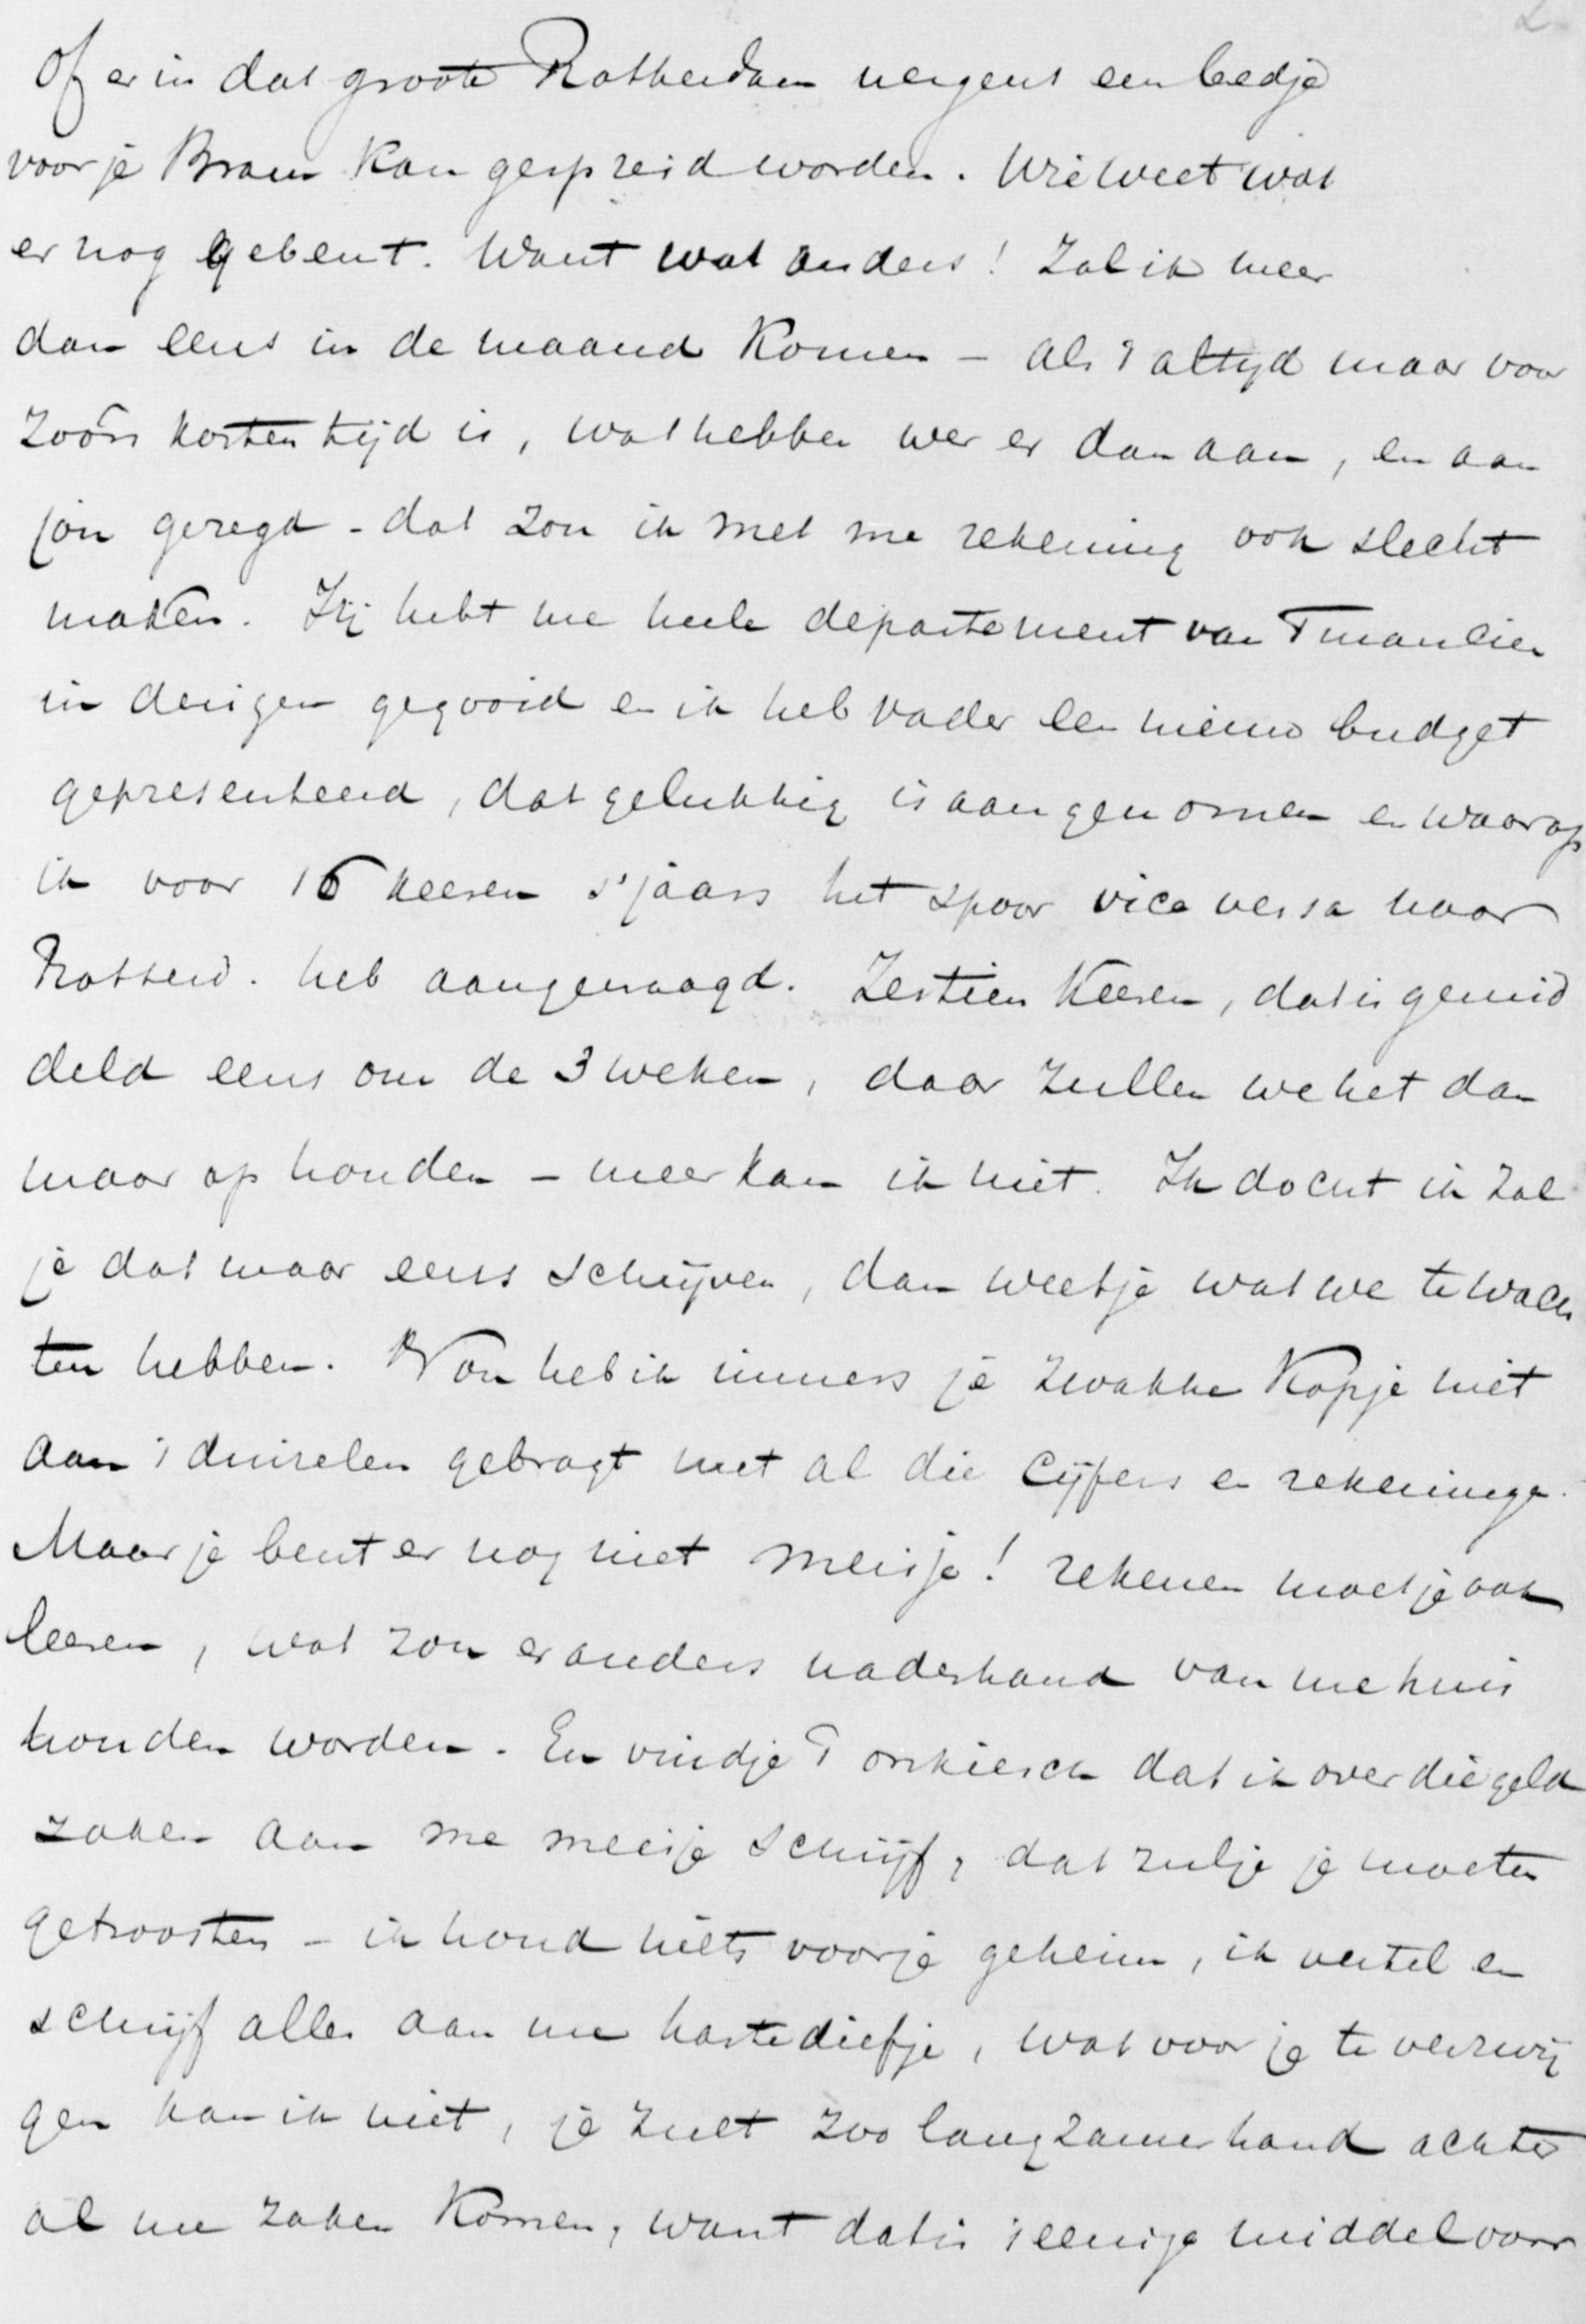 2.
Of er in dat groote Rotterdam nergens een bedje
voor je Bram kan gespreid worden. Wie weet wat
er nog gebeurt. Want wat anders! Zal ik meer
dan eens in de maand komen – als 't altijd maar voor
zoo'n korten tijd is, wat hebben we er dan aan, en aan
jou gezegd – dat zou ik met me rekening ook slecht
maken. Jij hebt me heele departement van Financien
in duigen gegooid en ik heb vader een nieuw budget
gepresenteerd, dat gelukkig is aangenomen en waarop
ik voor 16 keeren 's jaars het spoor vice versa naar
Rotterd. heb aangevraagd. Zestien keeren, dat is gemid
deld eens om de 3 weken, daar zullen we het dan
maar op houden – meer kan ik niet. Ik docht ik zal
je dat maar eens schrijven, dan weet je wat we te wach
ten hebben. Nou heb ik immers je zwakke kopje niet
aan 't duizelen gebragt met al die cijfers en rekeningen.
Maar je bent er nog niet meisje! rekenen moet je ook
leeren, wat zou er anders naderhand van me huis
houden worden. En vind je 't onkiesch dat ik over die geld
zaken aan me meisje schrijf, dat zul je je moeten
getroosten – ik houd niets voor je geheim, ik vertel en
schrijf alles aan me hartediefje, wat voor je te verzwij
gen kan ik niet, je zult zoo langzamerhand achter
al me zaken komen, want dat is 't eenige middel voor